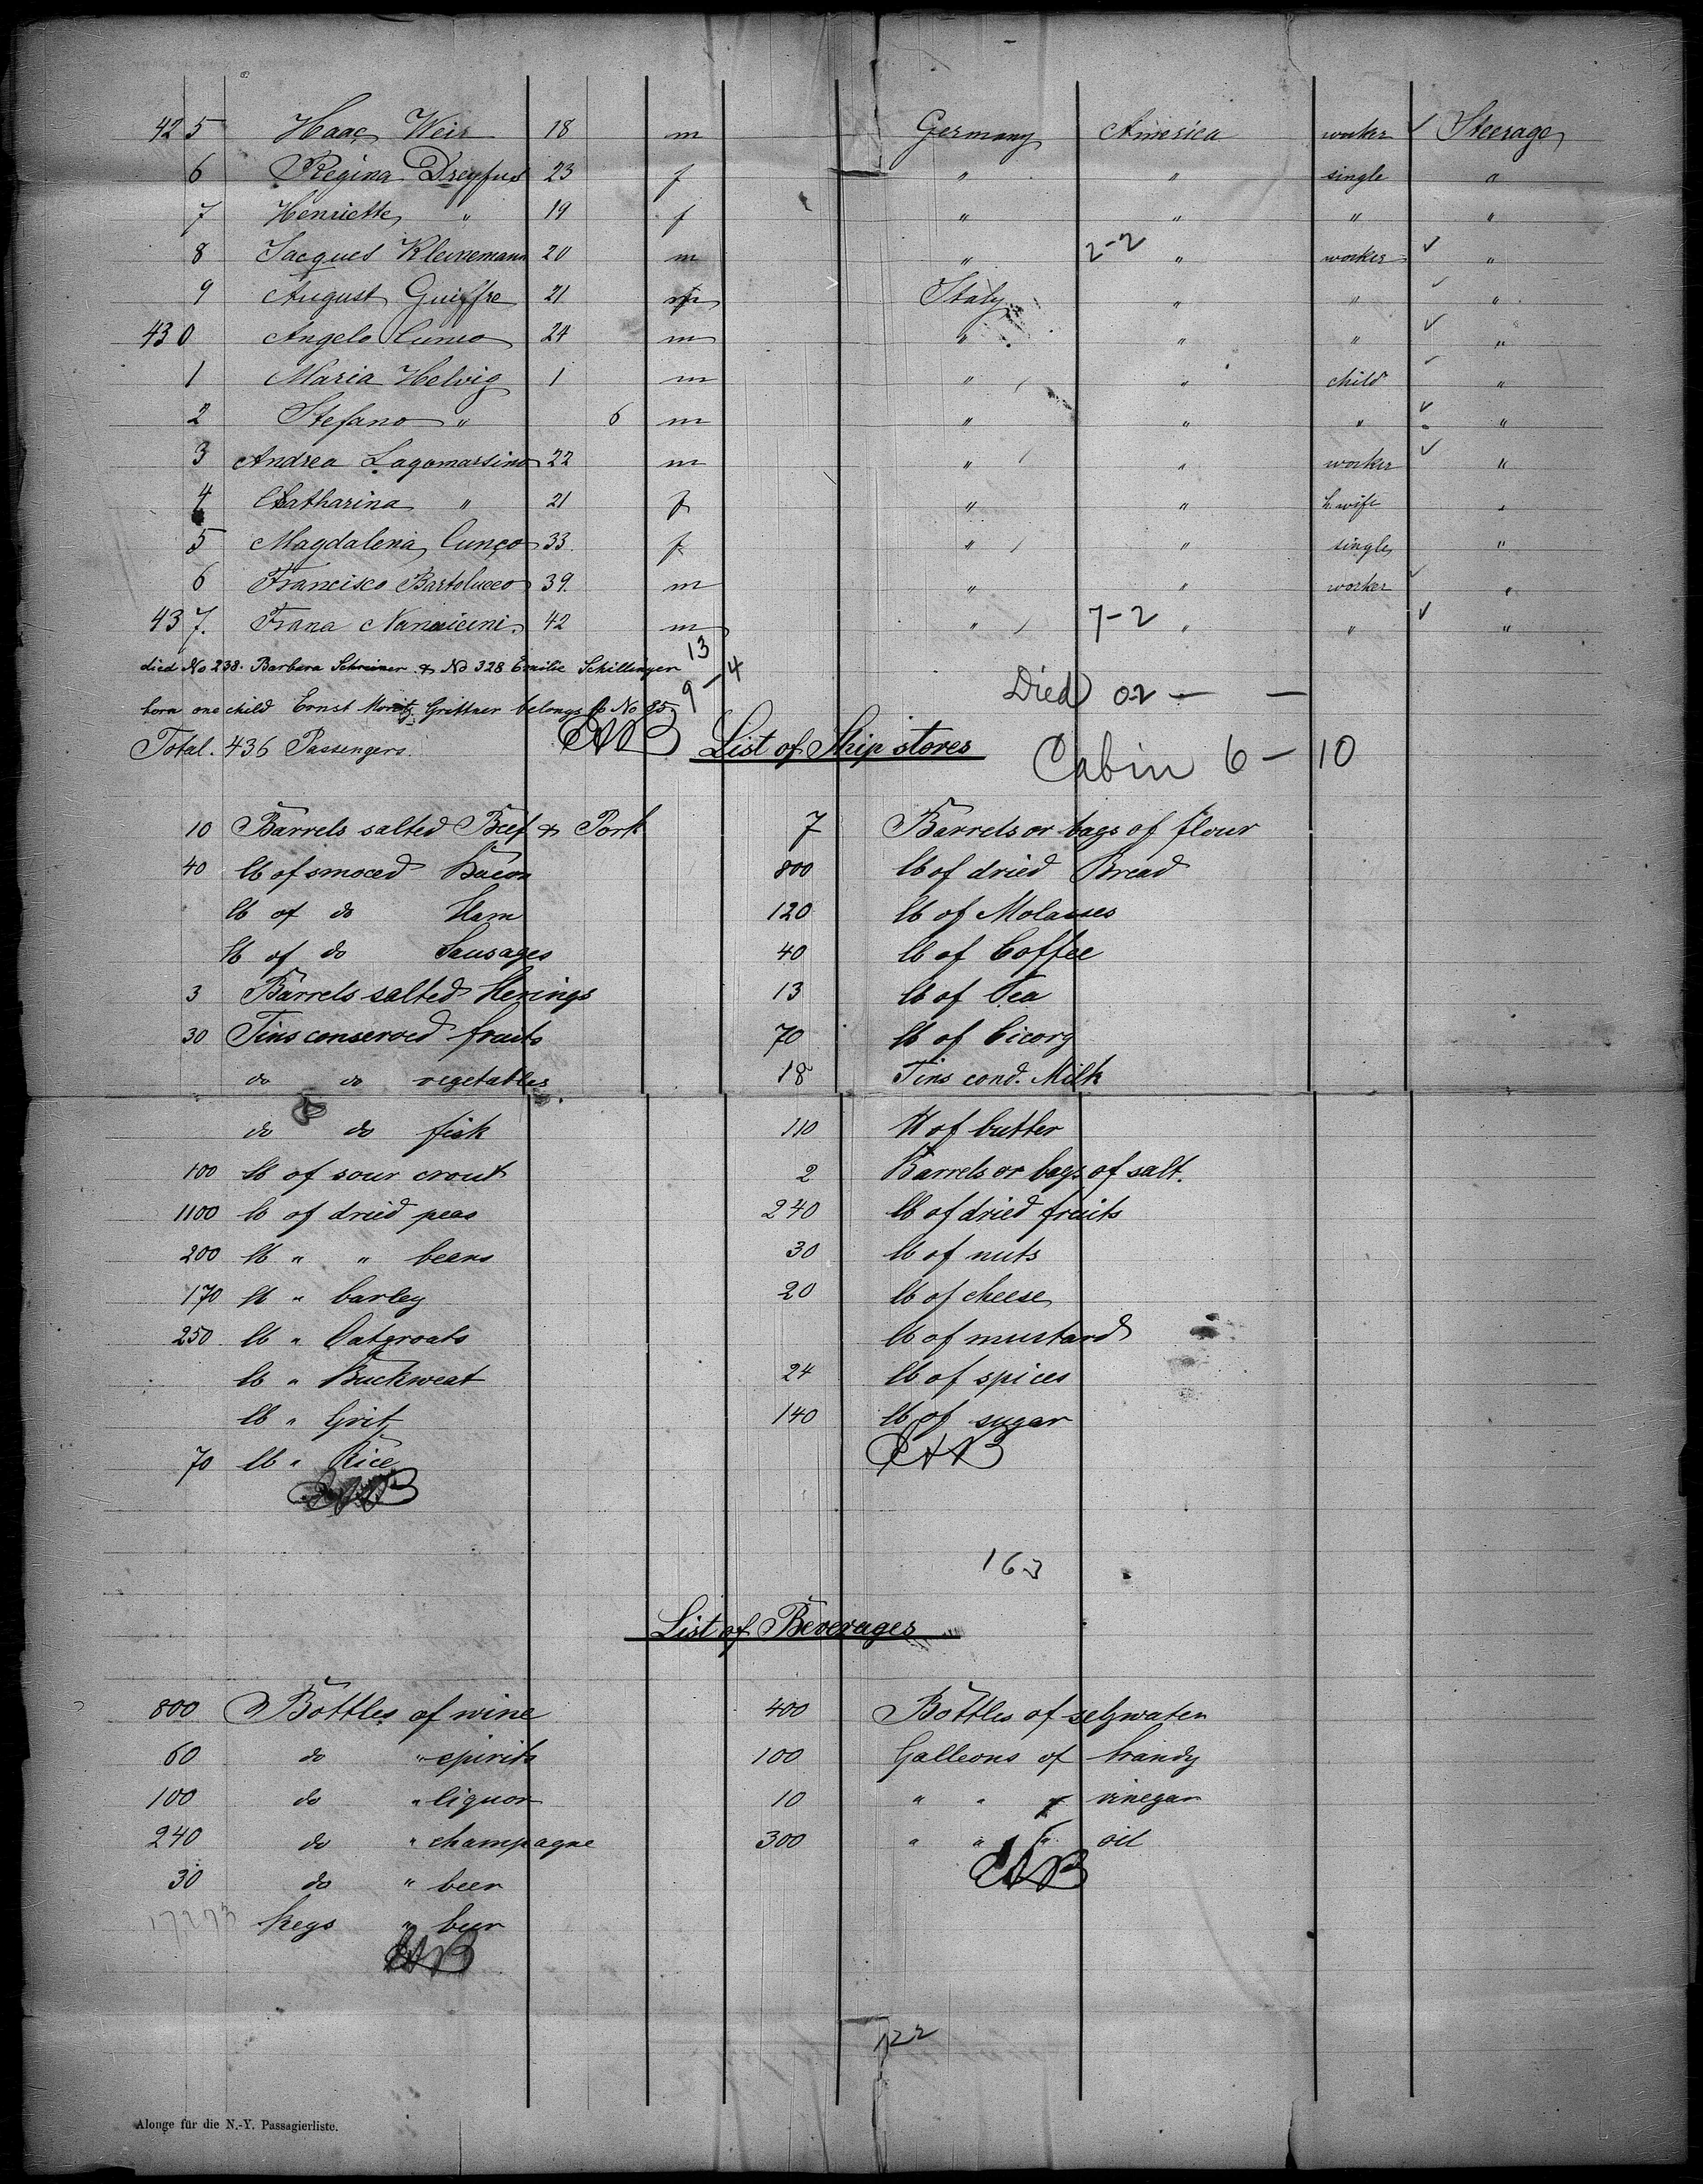 42 5 Haac Weis 18 m Germany America worker ✓ Steerage
6 Regina Dreyfus 23 f " " single "
7 Henriette " 19 f " " " "
2-2
8 Jacques Kleinemann 20 m " " worker ✓ "
9 August Guiffre 21 m Italy " " ✓ "
43 0 Angelo Cuneo 24 m " " " ✓ "
1 Maria Helvig 1 m " " child ✓ "
2 Stefano " 6 m " " " ✓ "
3 Andrea Lagomarsino 22 m " " worker ✓ "
4 Catharina " 21 f " " h.wife "
5 Magdalena Cuneo 33. f " " single "
6 Francisco Bartolucco 39. m " " worker ✓ "
43 7. Frana 42 m " 7-2 " " ✓ "
died No 238. Barbara Schreiner & No 328 Emilie Schillinger 13
9-4
Died 02 — —
born one child Ernst Moritz Grittner belongs to No 95.
Total. 436 Passengers.
List of Ship stores
Cabin 6 - 10
10 Barrels salted Beef & Pork 7 Barrels or bags of flour
40 lb of smoced Bacon 800 lb of dried Bread
lb of do Ham 120 lb of Molasses
lb of do Sausages 40 lb of Coffee
3 Barrels salted Herings 13 lb of Tea
30 Tins conserved fruits 70 lb of Cicory
do do vegetables 18 Tins cond. Milk
do do fish 110 lb of butter
100 lb of sour crout 2 Barrels or bags of salt.
1100 lb of dried peas 240 lb of dried fruits
200 lb " " beans 30 lb of nuts
170 lb " barley 20 lb of cheese
250 lb " Oatgroats lb of mustard
lb " Buckweat 24 lb of spices
lb " Grit 140 lb of sugar
70 lb " Rice
163
List of Beverages
800 Bottles of wine 400 Bottles of selzwater
60 do " spirits 100 Galleons of brandy
100 do " liquor 10 " " " vinegar
240 do " champagne 300 " " " oil
30 do " beer
17273 kegs " beer
122
Alonge für die N.-Y. Passagierliste.